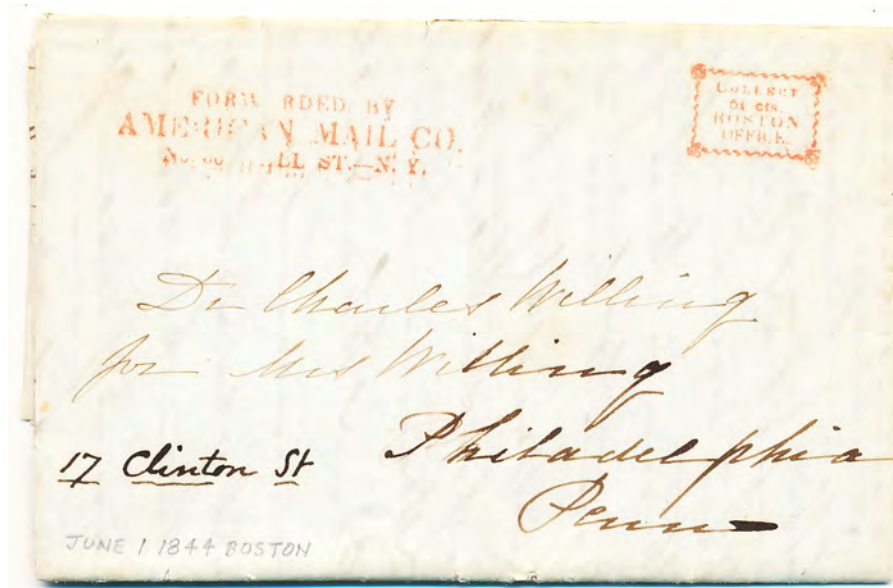 FORW RDED BY
AMERICAN MAIL CO.
ALL ST.—N. Y.
COLLECT
6¼ cts.
BOSTON
OFFICE.
Dr Charles Willing
for Mrs Willing
Philadelphia
17 Clinton St
Penn
JUNE 1 1844 BOSTON